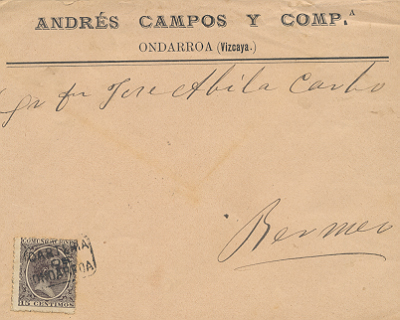 ANDRÉS CAMPOS Y COMP.ᴬ
ONDARROA (Vizcaya.)
Jose Abila Carbo
Bermeo
COMUNICACIONES
CARTERIA
ONDARROA
15 CENTIMOS